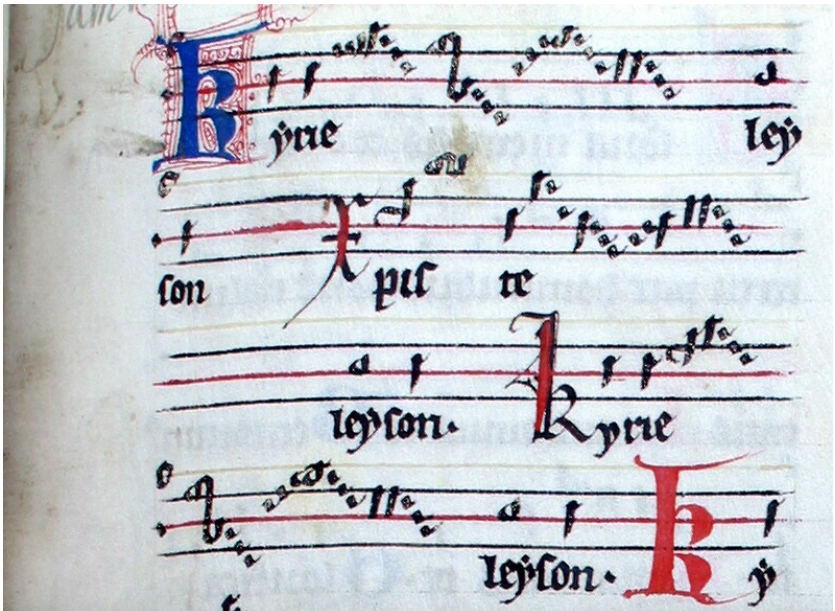 Kÿrie leÿ
son Xpiſte
leyſon. Kyrie
leÿſon. Kÿ